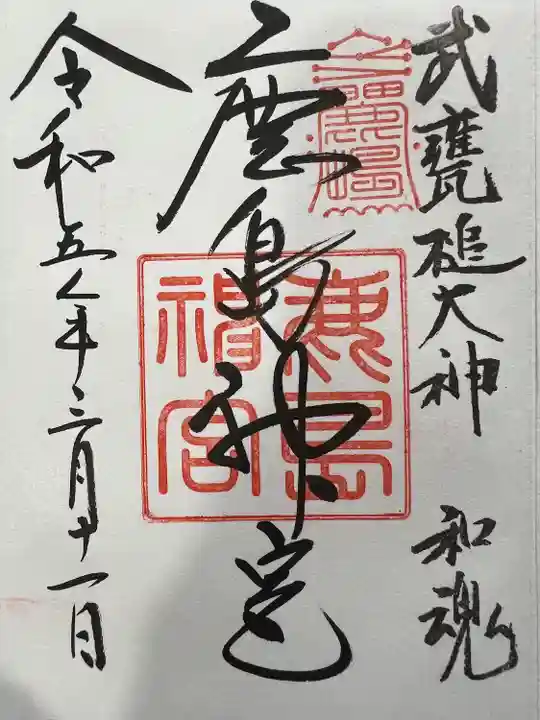 武甕槌大神 和魂
鹿嶋
鹿島神宮
鹿島神宮
令和五年三月十一日